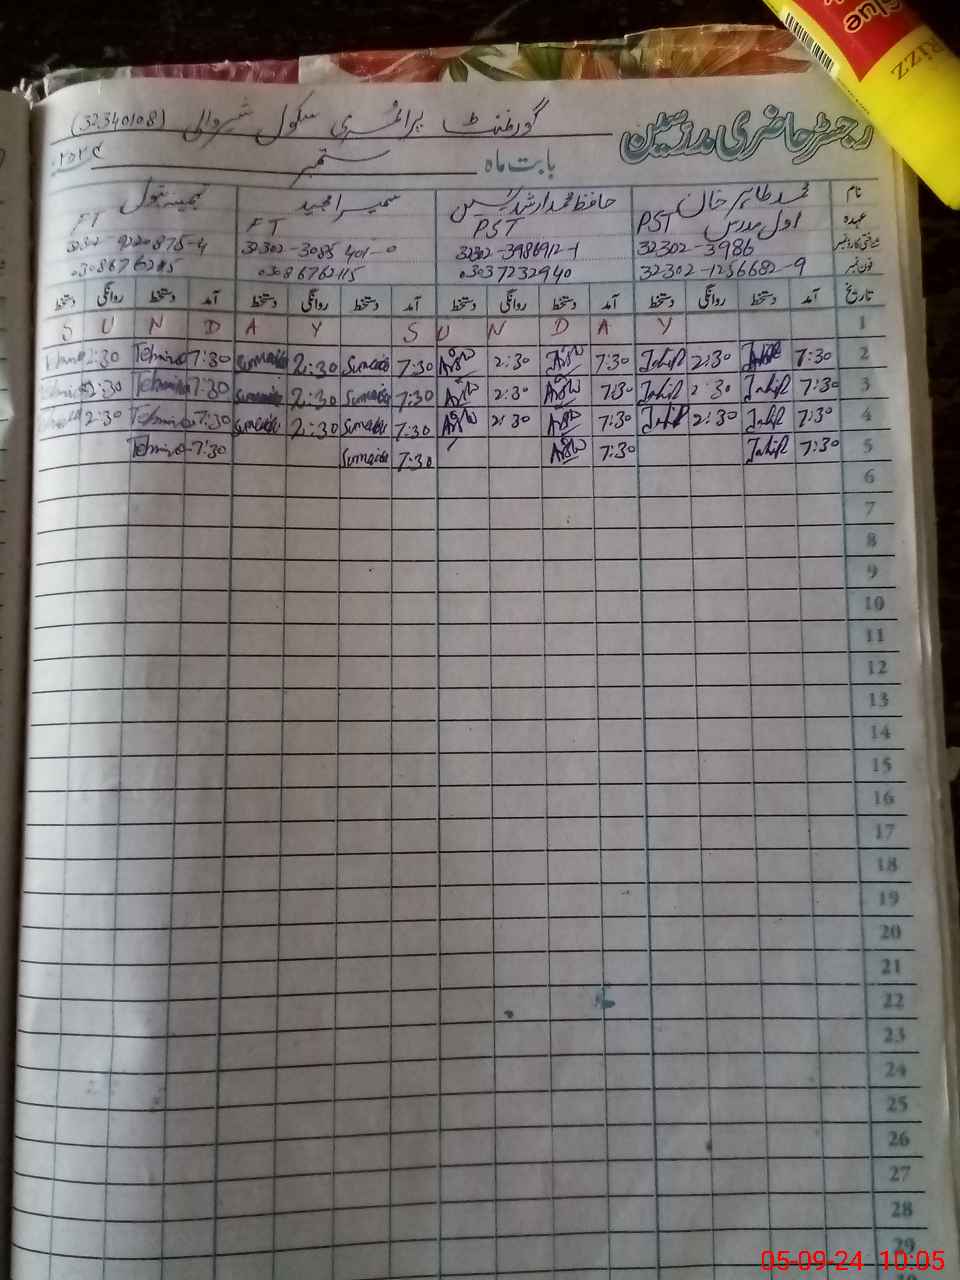 رجسٹر حاضری مدرسین
گورنمنٹ پرائمری سکول شیروالی (32340108)
بابت ماہ ستمبر ۲۰۲۴
نام محمد طاہر خان حافظ محمد ارشد یٰسین سمیرا مجید
عہدہ اول مدرس PST PST FT FT
شناختی کارڈ نمبر 32302-3986 32302-3986912-1 32302-3085401-0 32302-9220875-4
فون نمبر 32302-1256682-9 03037232940 03086762115 03086762115
تاریخ آمد دستخط روانگی دستخط آمد دستخط روانگی دستخط آمد دستخط روانگی دستخط آمد دستخط روانگی دستخط
1 S U N D A Y S U N D A Y
2 7:30 2:30 Tahir 7:30 Arshad 2:30 Arshad 7:30 Sumaira 2:30 Sumaira 7:30 Tehmina 2:30
3 7:30 Tahir 2:30 Tahir 7:30 Arshad 2:30 Arshad 7:30 Sumaira 2:30 Sumaira 7:30 Tehmina 2:30
4 7:30 Tahir 2:30 Tahir 7:30 Arshad 2:30 Arshad 7:30 Sumaira 2:30 Sumaira 7:30 Tehmina 2:30
5 7:30 Tahir 7:30 Arshad 7:30 Sumaira 7:30 Tehmina
6
7
8
9
10
11
12
13
14
15
16
17
18
19
20
21
22
23
24
25
26
27
28
29
Glue
RIZZ
05-09-24 10:05